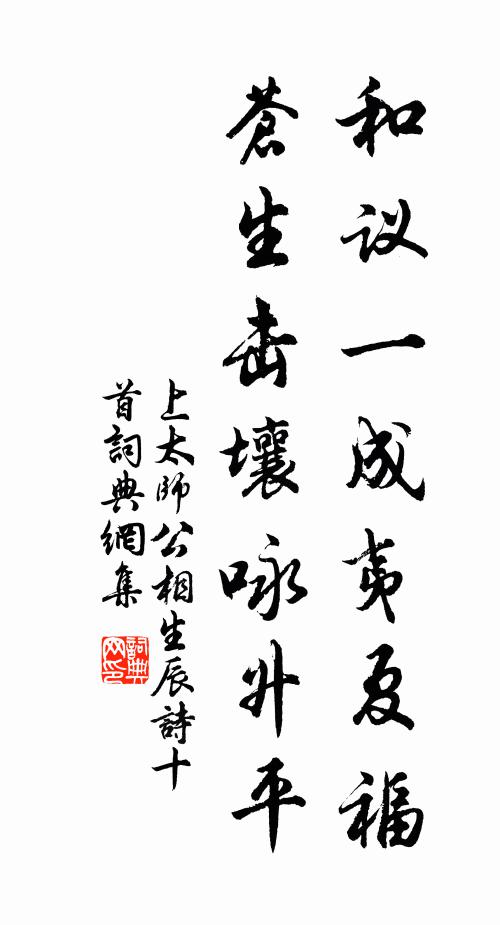 和议一成夷夏福
蒼生击壤咏升平
上太師公相生辰詩十
首詞典網集
詞典
网印